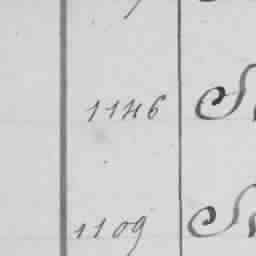 1146
1109